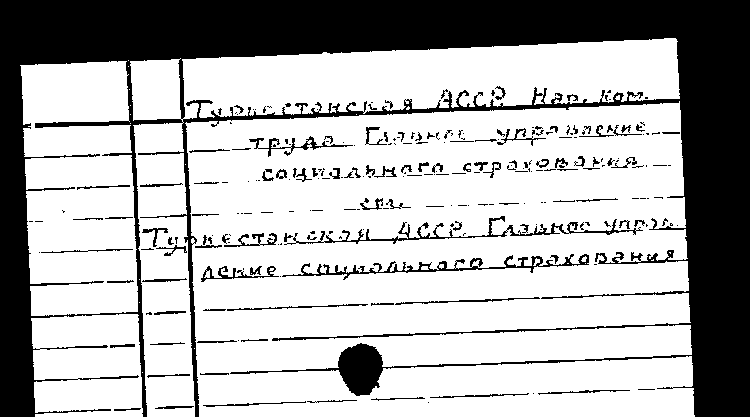 Туркестанская АССР Нар. ком.
труда Главное управление
социального страхования
см.
Туркестанская АССР. Главное управ
ление социального страхования